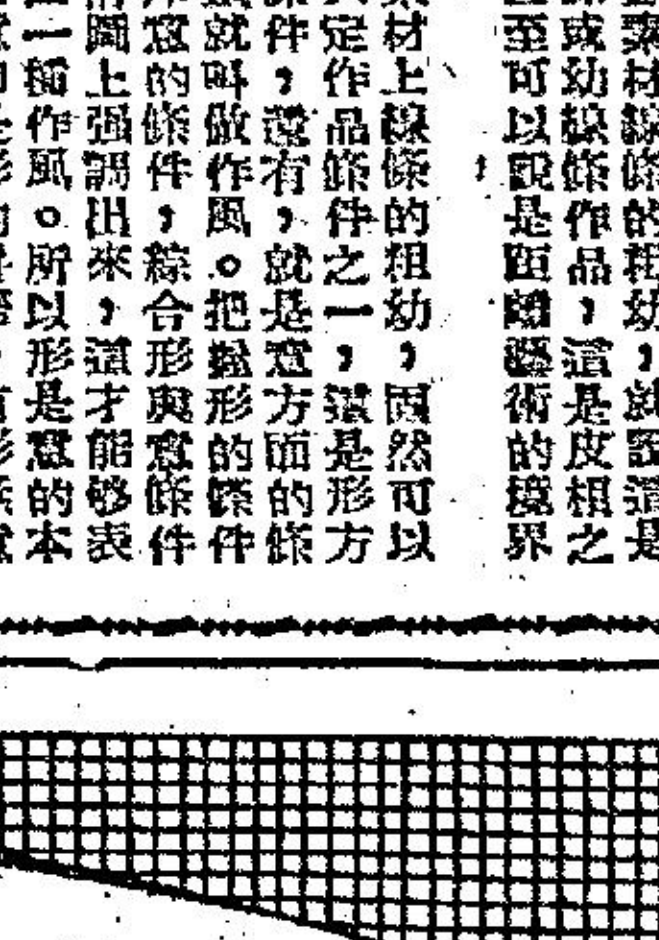 素材線條的粗幼，就說這是
或幼線條作品，這是皮相之
至可以說是距離藝術的境界
素材上線條的粗幼，固然可以
定作品條件之一，這是形方
件，還有，就是意方面的條
就叫做作風。把握形的條件
意的條件，綜合形與意條件
圖上强調出來，這才能够表
一種作風。所以形是意的本